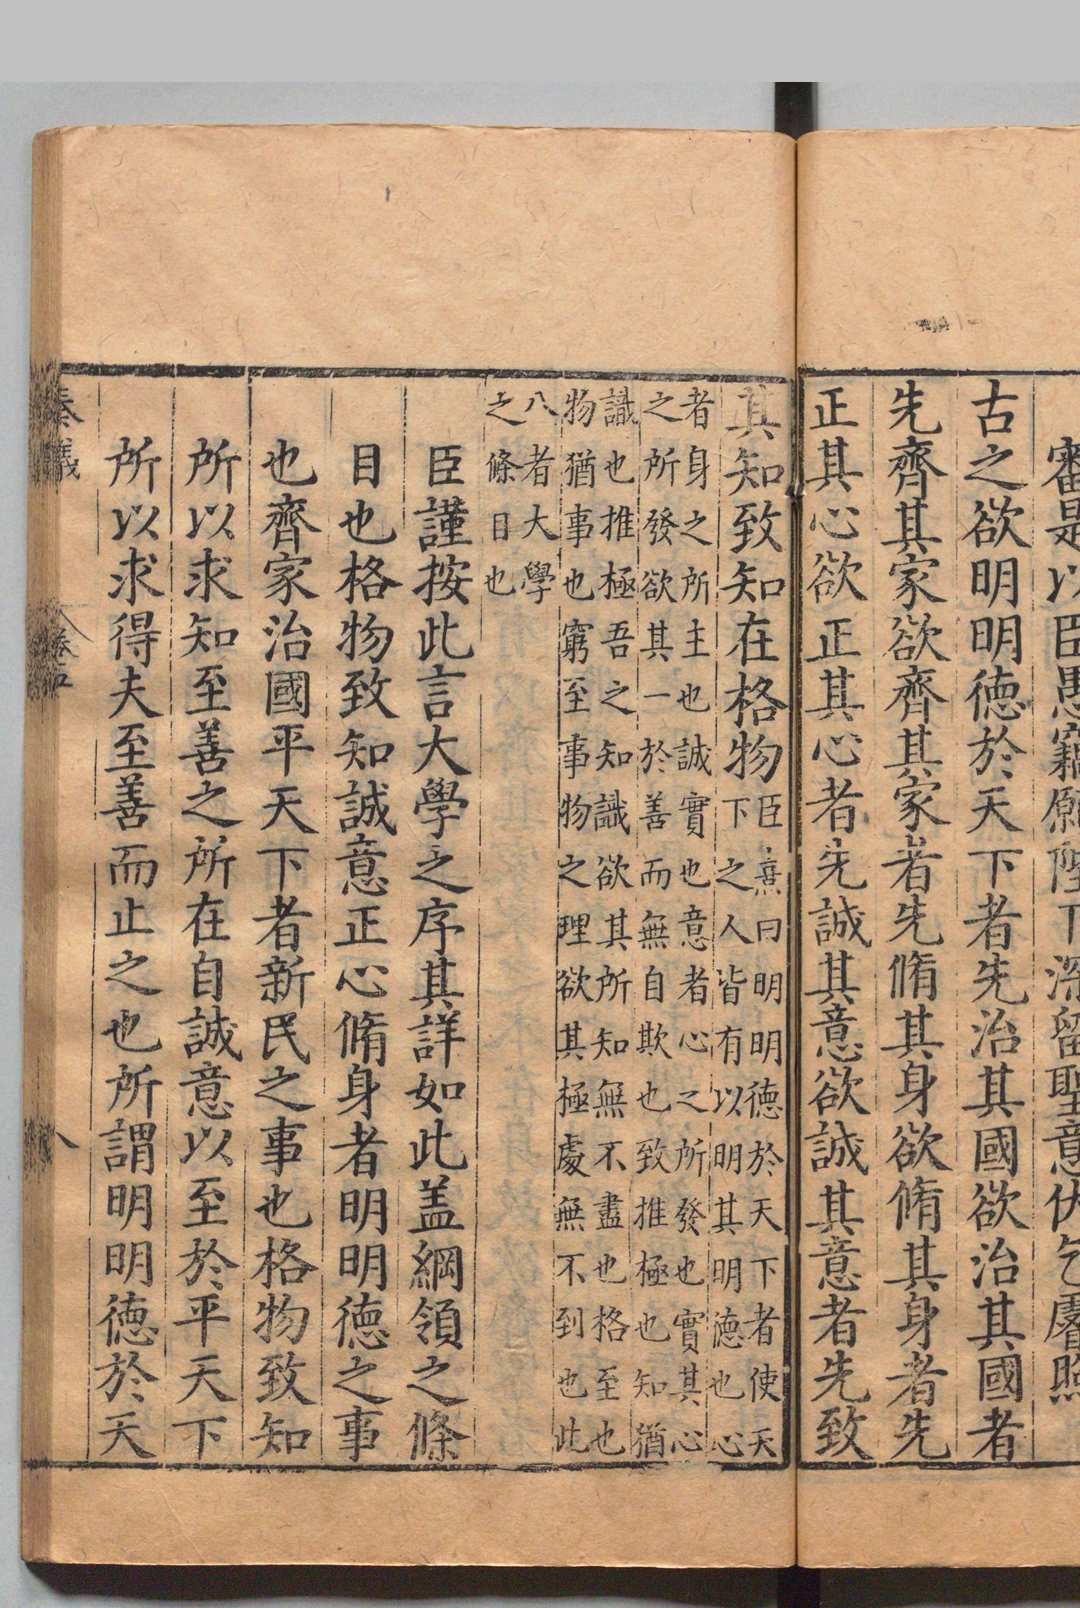 審是以臣愚竊願陛下深留聖意伏乞睿照
古之欲明明德於天下者先治其國欲治其國者
先齊其家欲齊其家者先脩其身欲脩其身者先
正其心欲正其心者先誠其意欲誠其意者先致
其知致知在格物
臣熹曰明明德於天下者使天
下之人皆有以明其明德也心
者身之所主也誠實也意者心之所發也實其心
之所發欲其一於善而無自欺也致推極也知猶
識也推極吾之知識欲其所知無不盡也格至也
物猶事也窮至事物之理欲其極處無不到也此
八者大學
之條目也
臣謹按此言大學之序其詳如此盖綱領之條
目也格物致知誠意正心脩身者明明德之事
也齊家治國平天下者新民之事也格物致知
所以求知至善之所在自誠意以至於平天下
所以求得夫至善而止之也所謂明明德於天
奏議
卷五
八